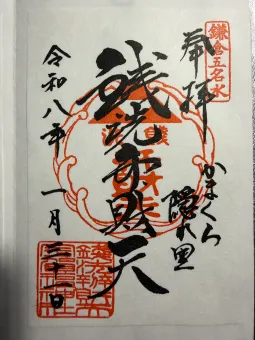 鎌倉五名水
奉拝
かまくら
隠れ里
銭洗弁財天
令和八年
一月三十一日